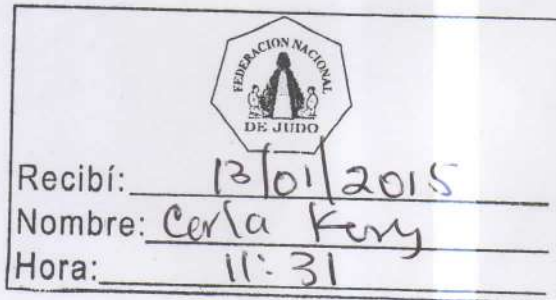 FEDERACION NACIONAL
DE JUDO
Recibí: 13/01/2015
Nombre:
Hora: 11:31